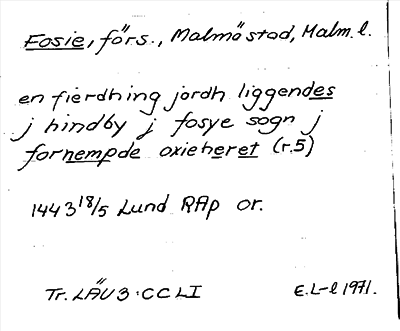 Fosie, förs., Malmö stad, Malm. l.
en fierdhing jordh liggendes
j hindby j fosye sogn j
fornempde oxieheret (r.5)
1443 18/5 Lund RAp or.
Tr. LÄU 3:CCLI E.L-l 1971.